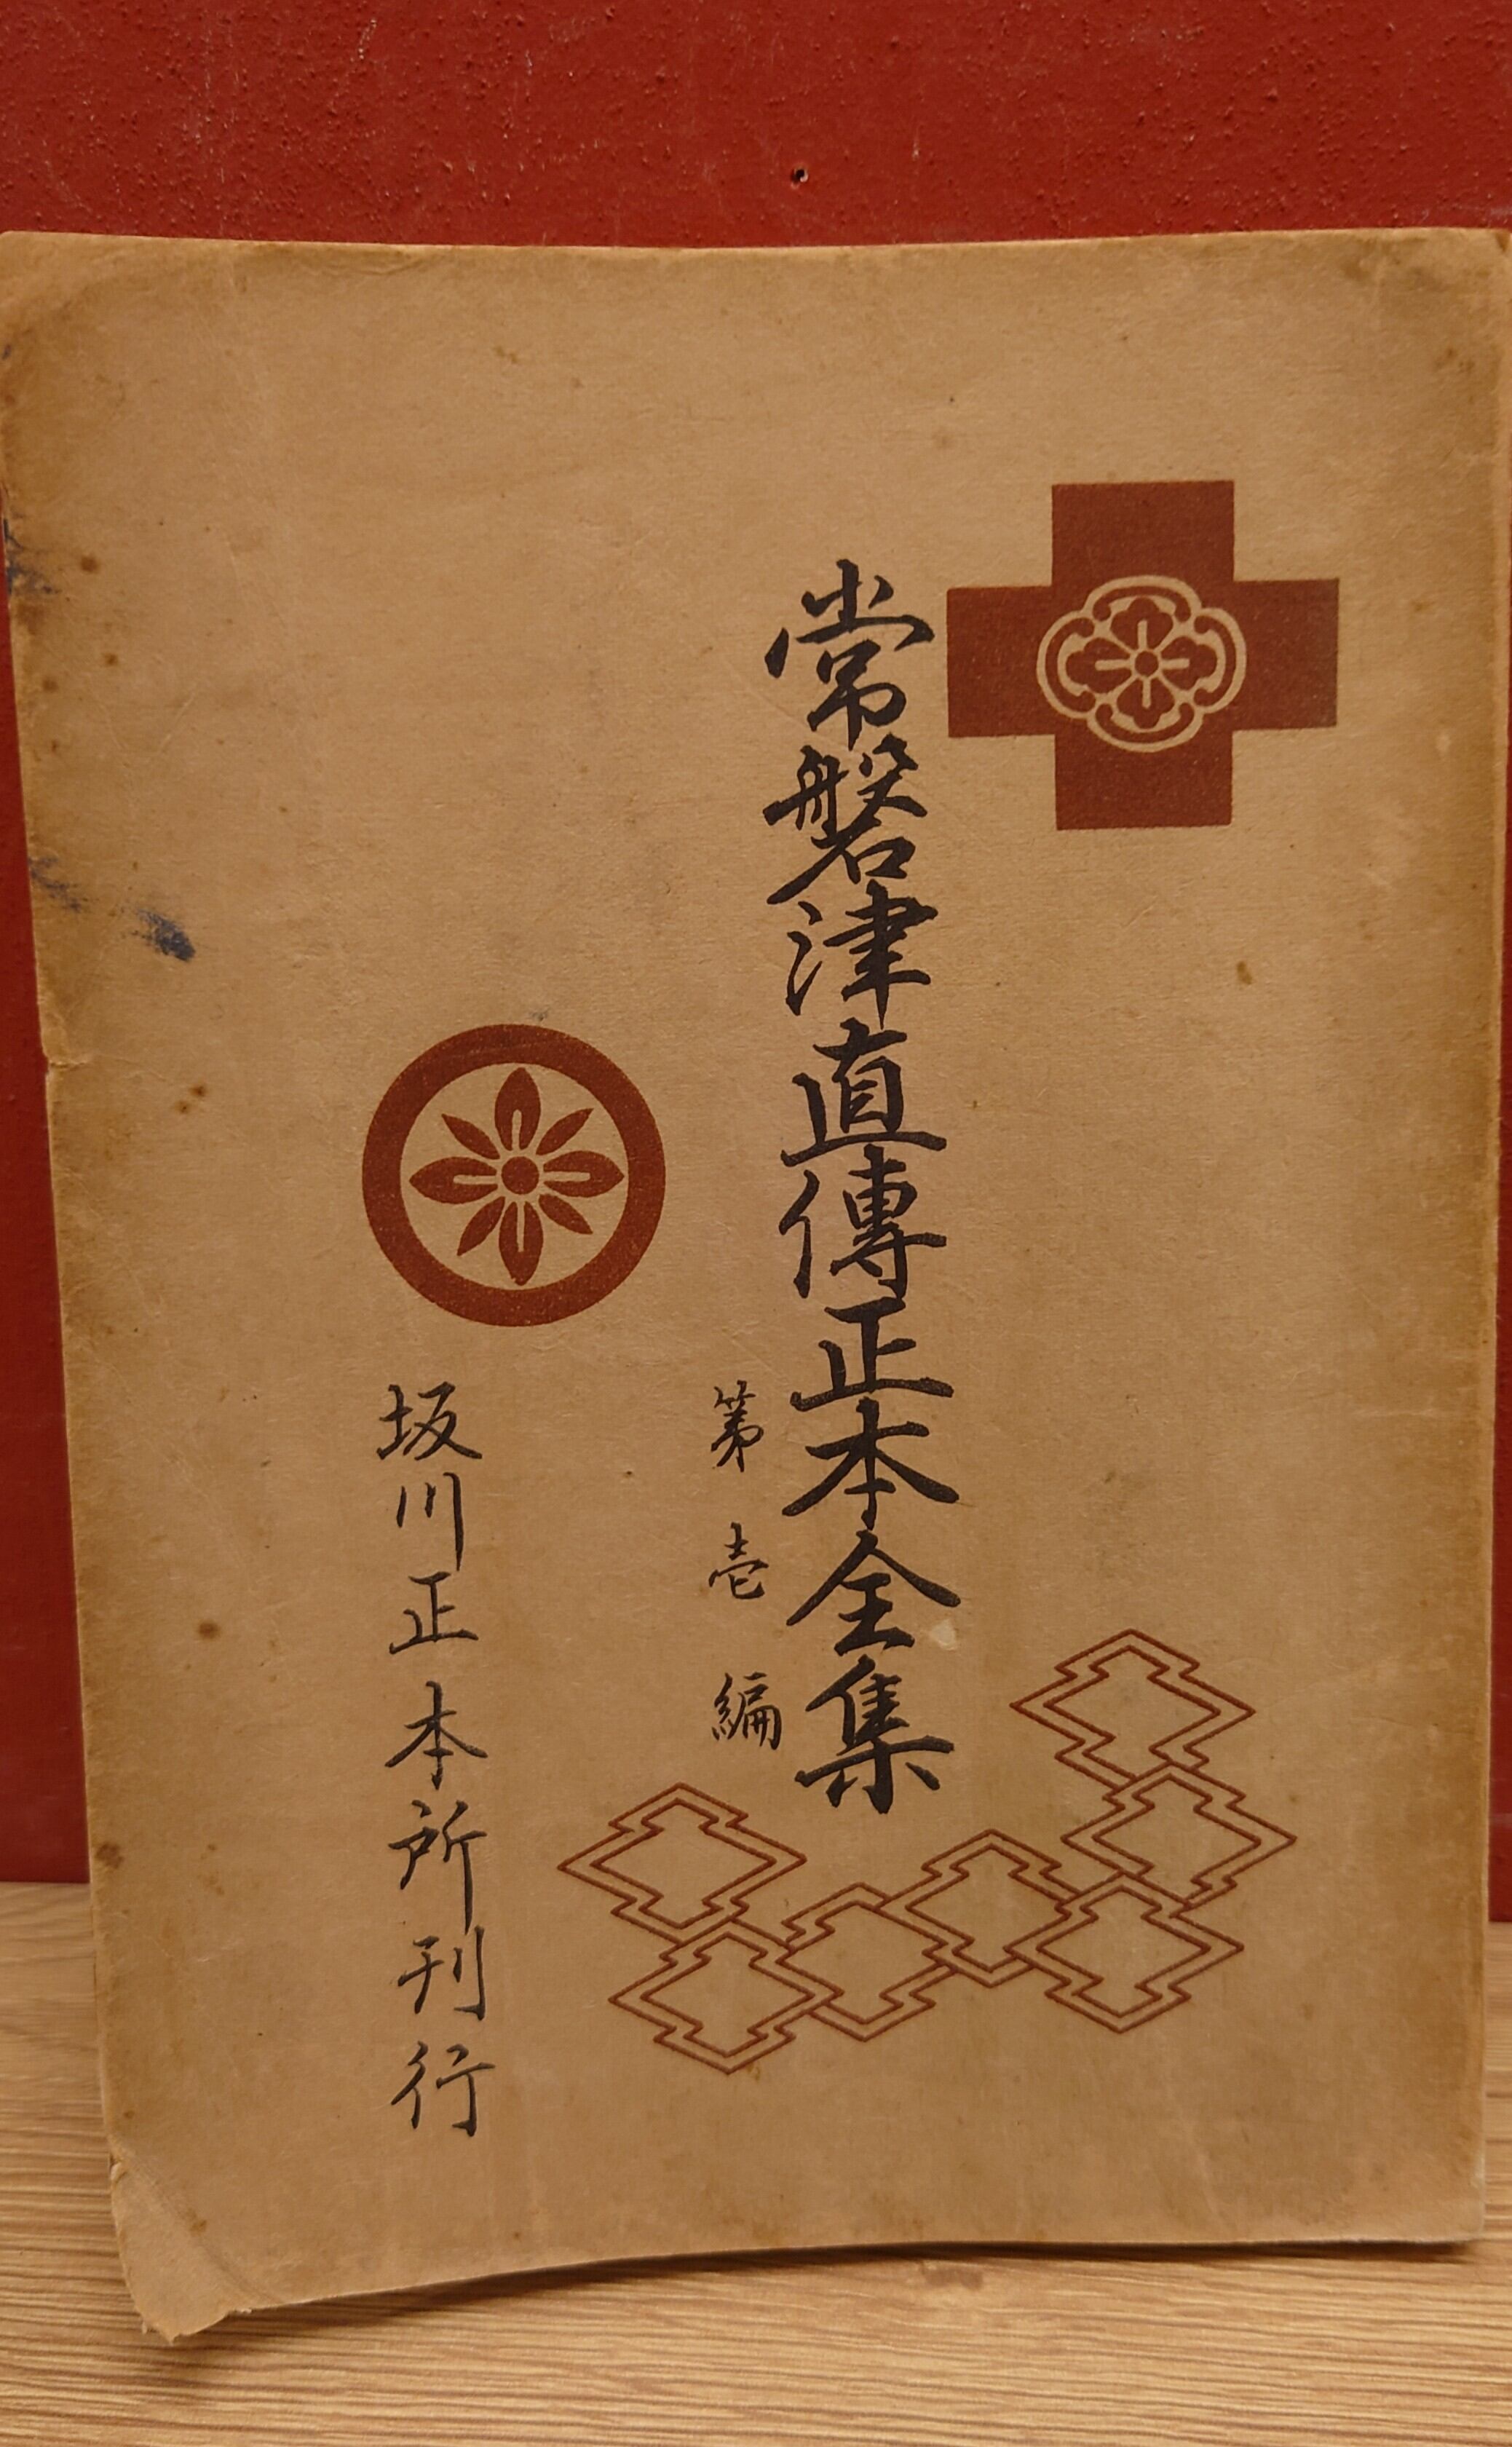 常磐津直傳正本全集
第壱編
坂川正本所刊行